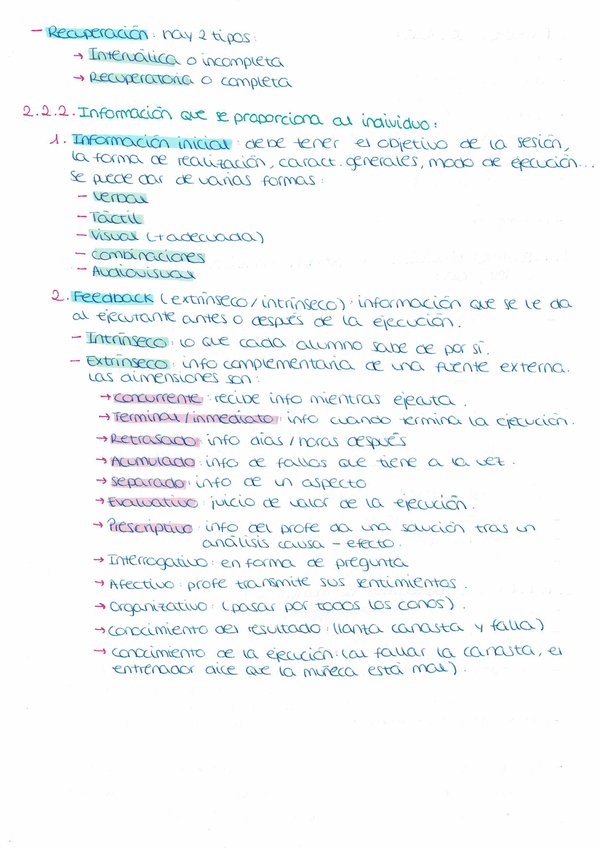 - Recuperación: hay 2 tipos:
→ Interválica o incompleta
→ Recuperatoria o completa
2.2.2. Información que se proporciona al individuo:
1. Información inicial: debe tener el objetivo de la sesión,
la forma de realización, caract. generales, modo de ejecución...
se puede dar de varias formas:
- Verbal
- Táctil
- Visual (+ adecuada)
- Combinaciones
- Audiovisual
2. Feedback (extrínseco/intrínseco): información que se le da
al ejecutante antes o después de la ejecución.
- Intrínseco: lo que cada alumno sabe de por sí.
- Extrínseco: info complementaria de una fuente externa.
Las dimensiones son:
→ Concurrente: recibe info mientras ejecuta.
→ Terminal/inmediato: info cuando termina la ejecución.
→ Retrasado: info días/horas después
→ Acumulado: info de fallos que tiene a la vez.
→ Separado: info de un aspecto
→ Evaluativo: juicio de valor de la ejecución.
→ Prescriptivo: info del profe da una solución tras un
análisis causa - efecto.
→ Interrogativo: en forma de pregunta
→ Afectivo: profe transmite sus sentimientos.
→ Organizativo: (pasar por todos los conos).
→ Conocimiento del resultado: (lanza canasta y falla)
→ Conocimiento de la ejecución: (al fallar la canasta, el
entrenador dice que la muñeca está mal).